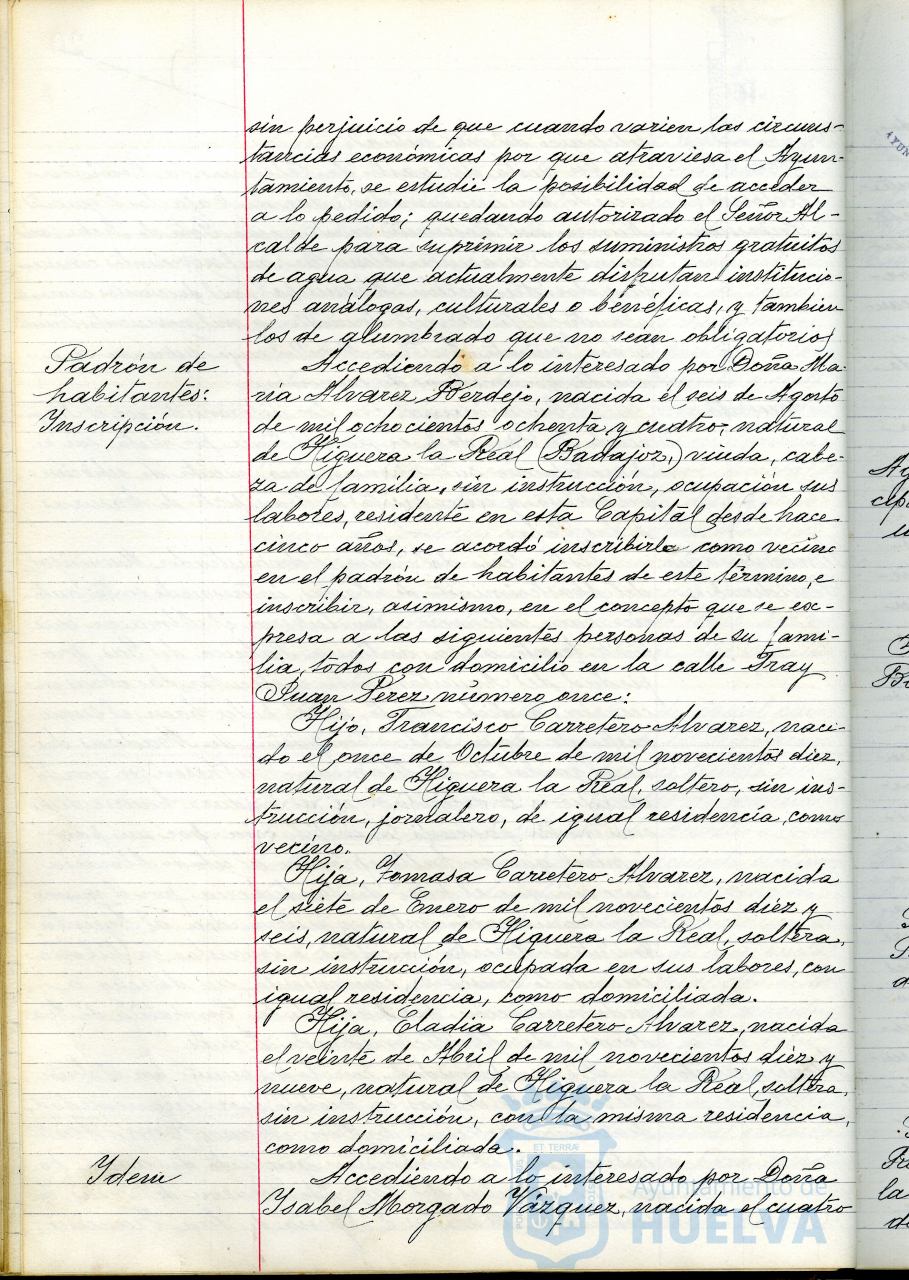 sin perjuicio de que cuando varien las circuns-
tancias económicas por que atraviesa el Ayun-
tamiento, se estudie la posibilidad de acceder
a lo pedido; quedando autorizado el Señor Al-
calde para suprimir los suministros gratuitos
de agua que actualmente disfrutan institucio-
nes análogas, culturales o benéficas, y tambien
los de alumbrado que no sean obligatorios
Padrón de
habitantes:
Inscripción.
Accediendo a lo interesado por Doña Ma-
ria Alvarez Berdejo, nacida el seis de Agosto
de mil ochocientos ochenta y cuatro, natural
de Higuera la Real (Badajoz,) viuda, cabe-
za de familia, sin instrucción, ocupación sus
labores, residente en esta Capital desde hace
cinco años, se acordó inscribirla como vecina
en el padrón de habitantes de este término, e
inscribir, asimismo, en el concepto que se ex-
presa a las siguientes personas de su fami-
lia, todos con domicilio en la calle Fray
Juan Pérez número once:
Hijo, Francisco Carretero Alvarez, naci-
do el once de Octubre de mil novecientos diez,
natural de Higuera la Real, soltero, sin ins-
trucción, jornalero, de igual residencia, como
vecino.
Hija, Tomasa Carretero Alvarez, nacida
el siete de Enero de mil novecientos diez y
seis, natural de Higuera la Real, soltera,
sin instrucción, ocupada en sus labores, con
igual residencia, como domiciliada.
Hija, Eladia Carretero Alvarez, nacida
el veinte de Abril de mil novecientos diez y
nueve, natural de Higuera la Real, soltera,
sin instrucción, con la misma residencia,
como domiciliada.
Idem
Accediendo a lo interesado por Doña
Isabel Morgado Vázquez, nacida el cuatro
Ayuntamiento de
HUELVA